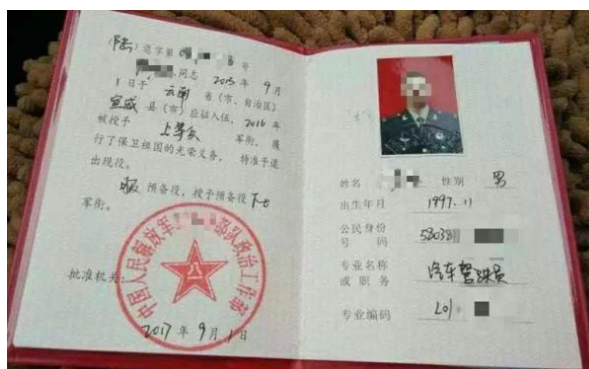 (陆)退字第 8 号
同志 2015 年 9 月
1 日于 云南 省(市、自治区)
宣威 县(市)应征入伍, 2016 年
被授予 上等兵 军衔, 履
行了保卫祖国的光荣义务, 特准予退
出现役。
服 预备役, 授予预备役 下士
军衔。
中国人民解放军 部队政治工作部
批准机关:
2017 年 9 月 1 日
姓名 性别 男
出生年月 1997.11
公民身份
号 码 53038
专业名称 汽车驾驶员
或 职 务
专业编码 L01